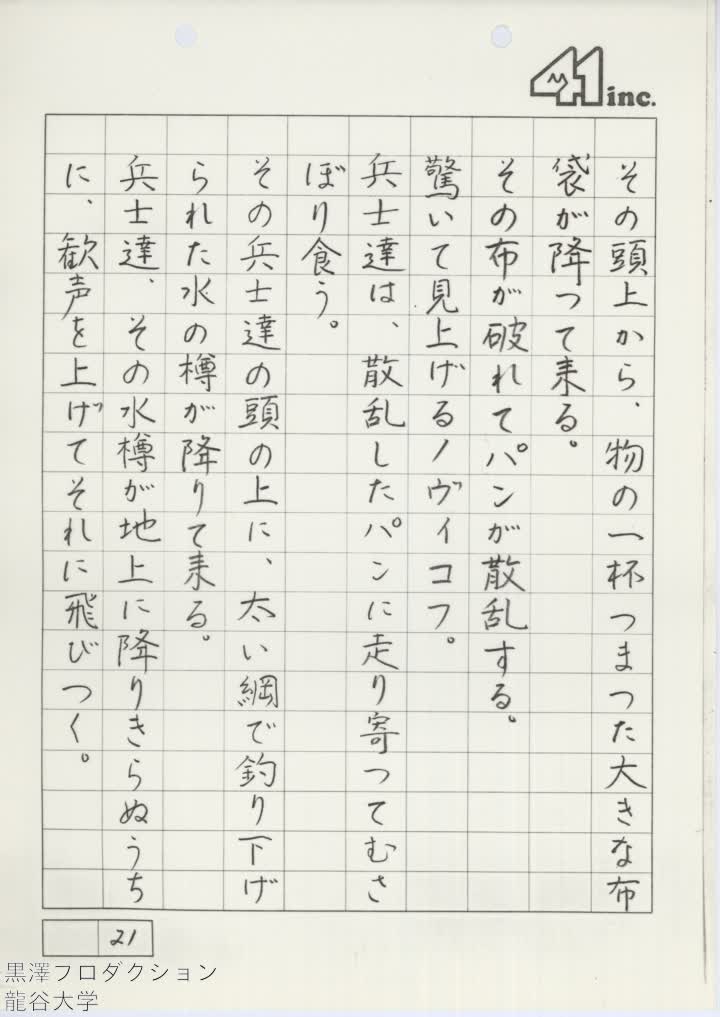 41 inc.
その頭上から、物の一杯つまつた大きな布
袋が降つて来る。
その布が破れてパンが散乱する。
驚いて見上げるノヴィコフ。
兵士達は、散乱したパンに走り寄つてむさ
ぼり食う。
その兵士達の頭の上に、太い綱で釣り下げ
られた水の樽が降りて来る。
兵士達、その水樽が地上に降りきらぬうち
に、歓声を上げてそれに飛びつく。
21
黒澤フロダクション
龍谷大学